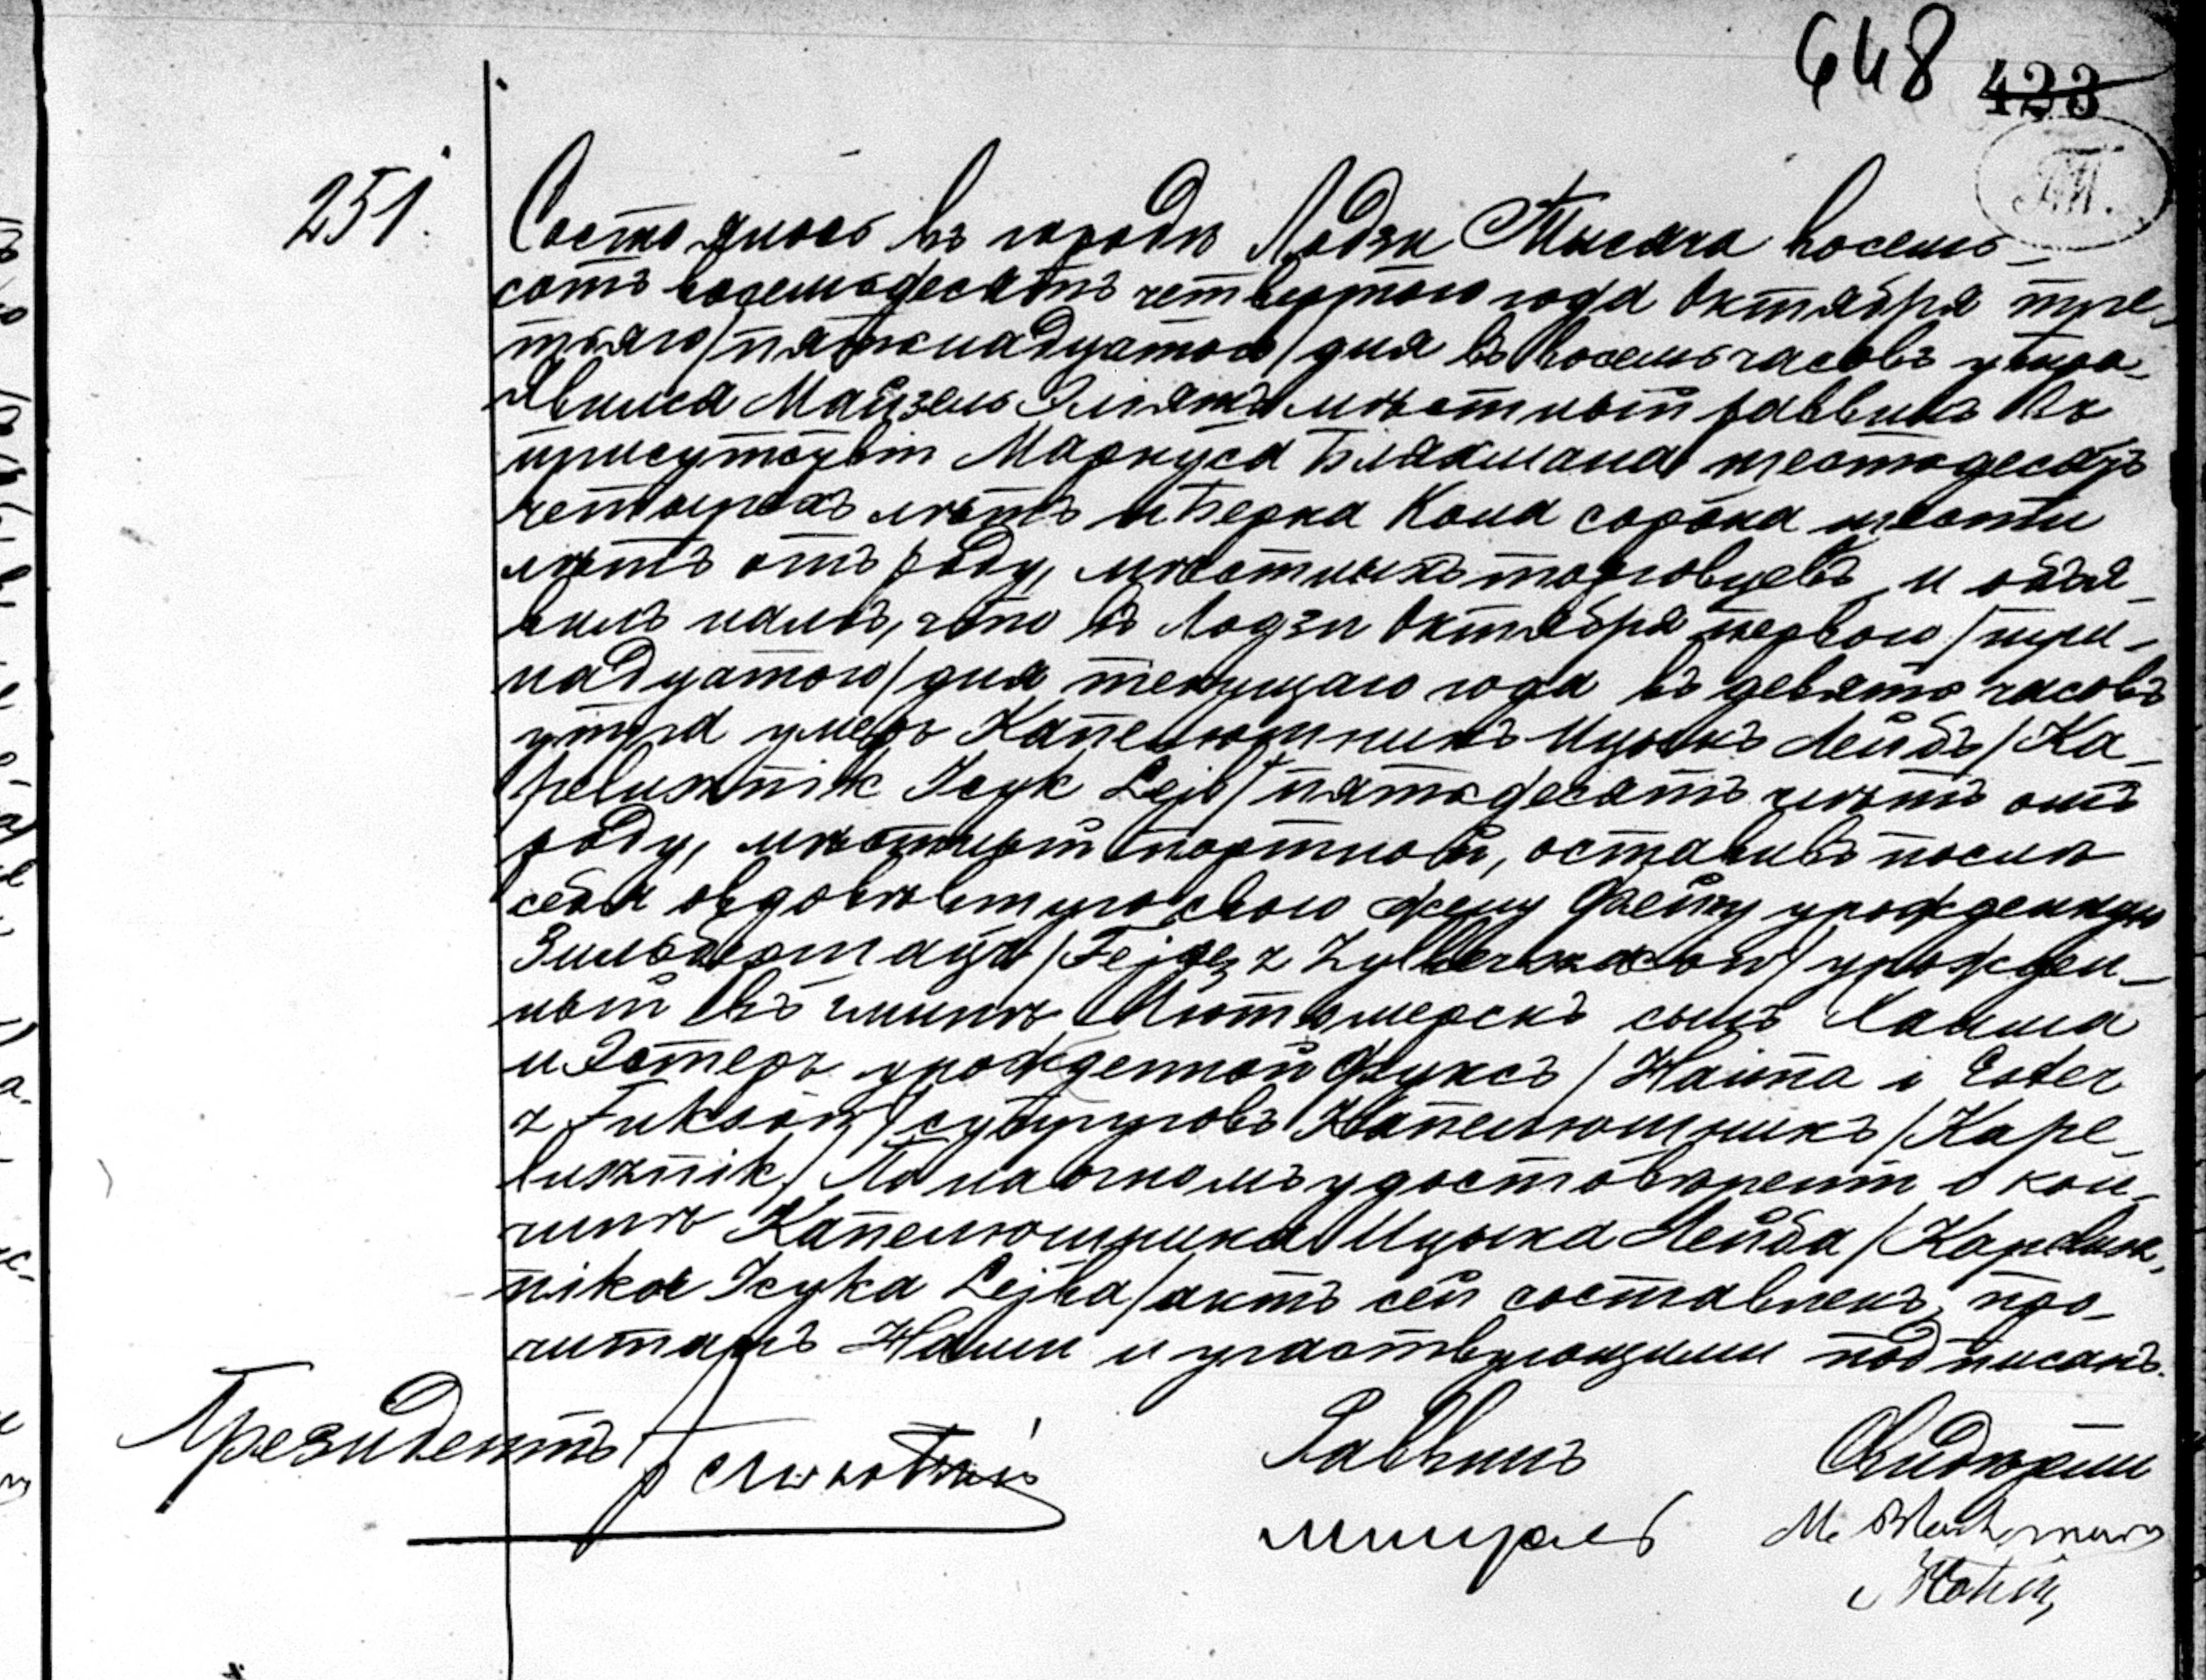 648 423
251.
Состоялось въ городѣ Лодзи Тысяча восемь-
сотъ восемьдесятъ четвертого года Октября тре-
тьяго/пятнадцатого/дня въ восемь часовъ утра-
Явился Майзель Эліяшъ мѣстный раввинъ въ
присутствіи Маркуса Бляхмана шестьдесятъ
четырехъ лѣтъ и Берка Кона сорока шести
лѣтъ отъ роду, мѣстныхъ торговцевъ, и объя-
вилъ намъ, что въ Лодзи Октября первого/три-
надцатого/дня текущаго года въ девять часовъ
утра умеръ Капелюшникъ Ицыкъ Лейбъ/Ka-
pelusznik Icyk Lejb/пятьдесятъ лѣтъ отъ
роду, мѣстный портной, оставивъ послѣ
себя овдовѣвшую свою жену Фейгу урожденную
Зильбершацъ/Fejgę z Zylberszaców/урожден-
ный въ гминѣ Лютомерскъ сынъ Хаима
и Эстеръ урожденной Фуксъ/Haima i Ester
z Fuksów/супруговъ Капелюшникъ/Kape-
lusznik/По наочномъ удостовѣреніи о кон-
чинѣ Капелюшника Ицыка Лейба/Kapelusz-
nika Icyka Lejba/актъ сей составленъ, про-
читанъ Нами и участвующими подписанъ.
Президентъ Раввинъ Свидѣтели
M. Blachman